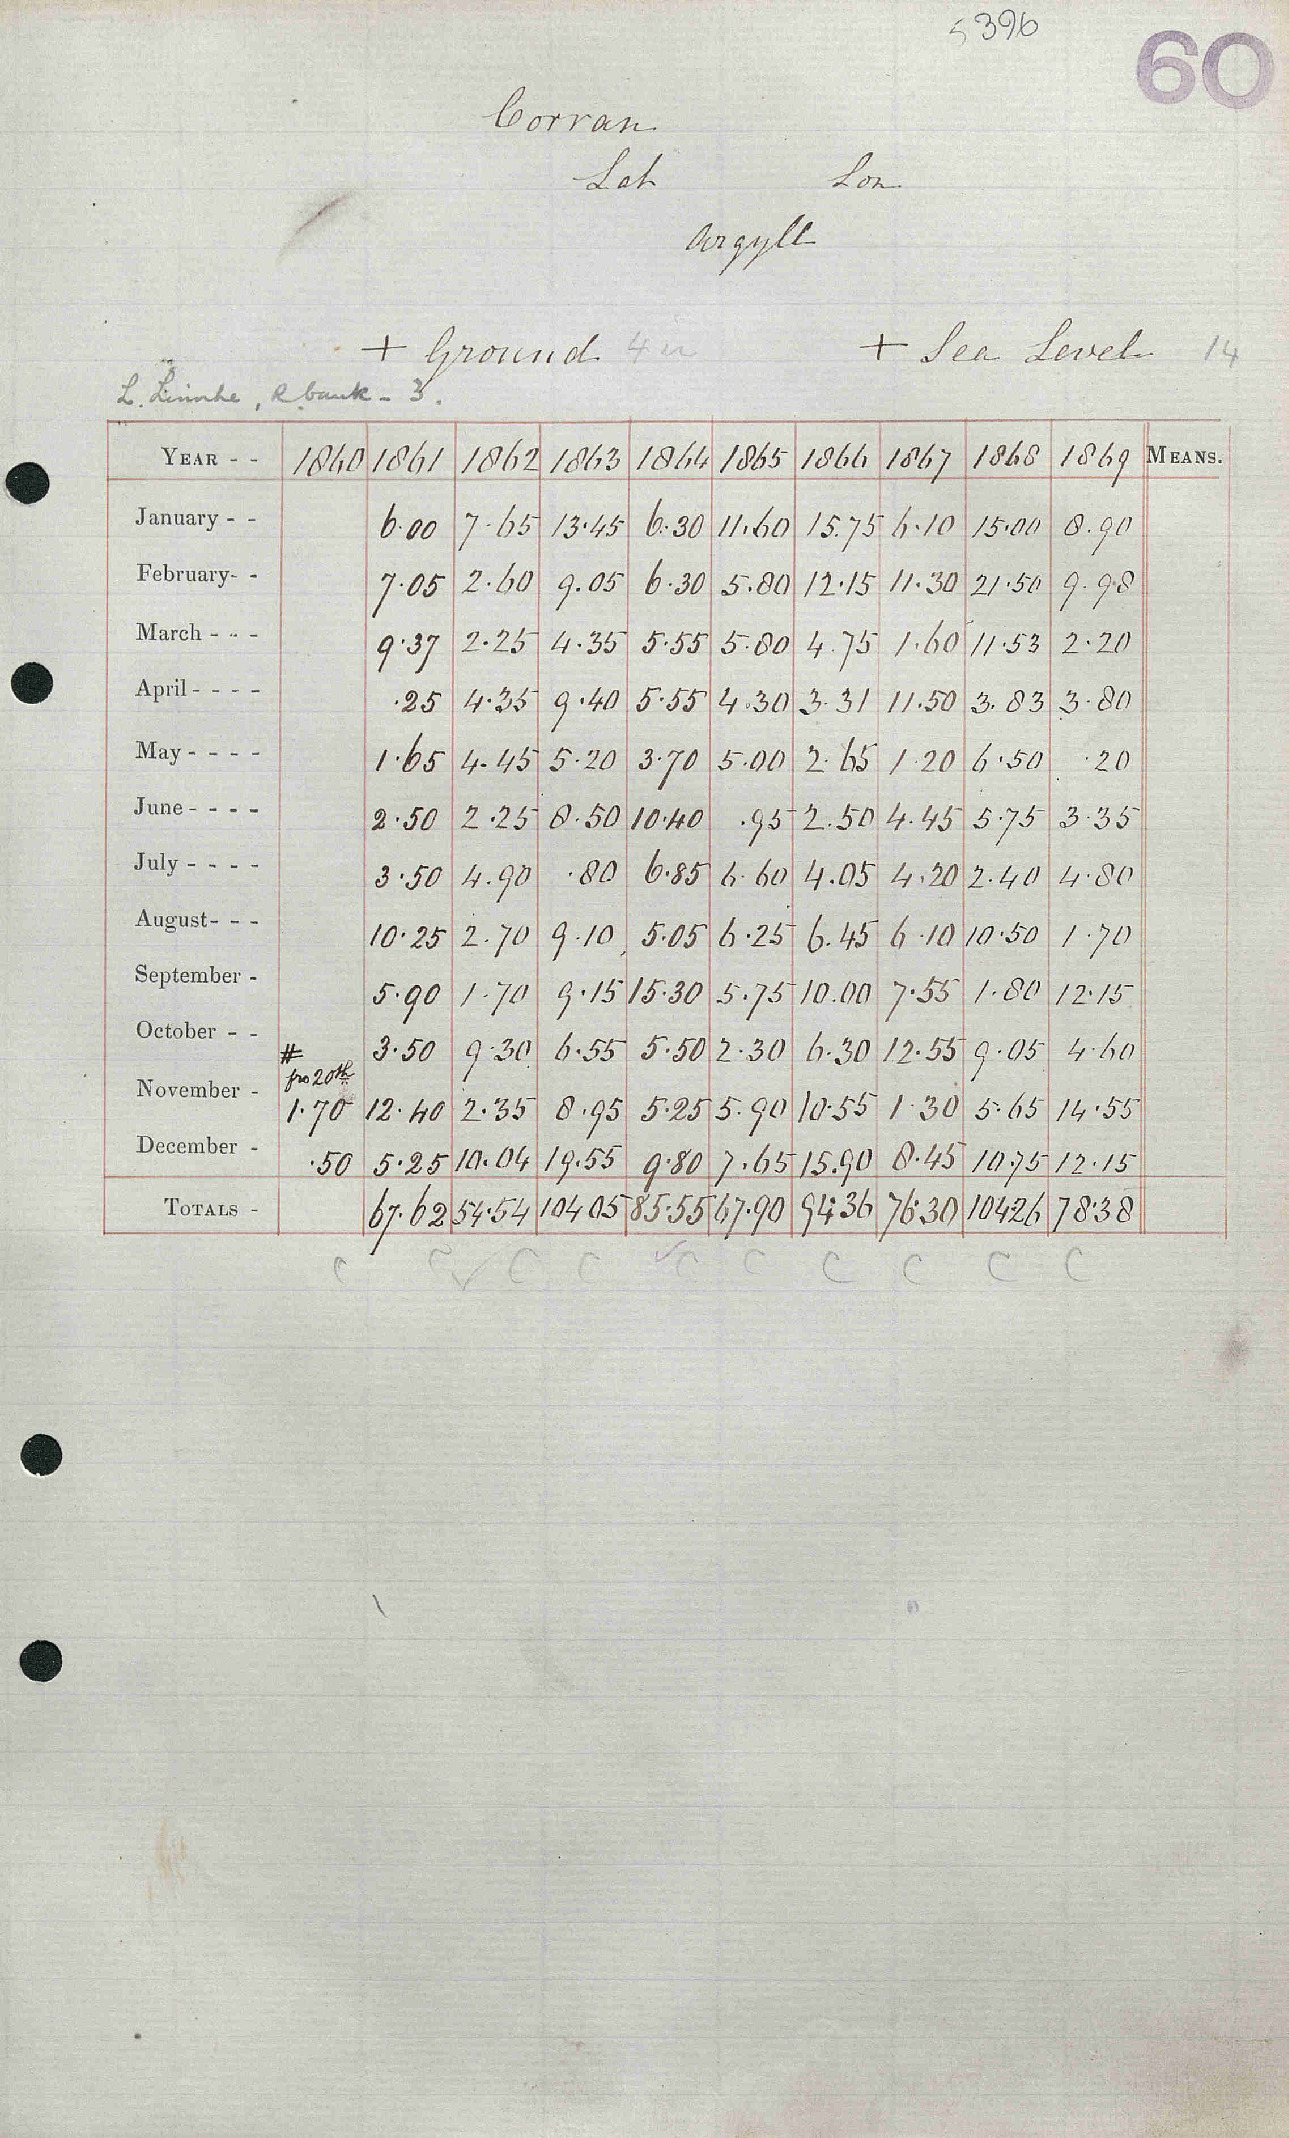 5396
60
Corran
Lat Lon
Argyll
+ Ground 4 in + Sea Level 14
L. Linnhe, R bank - 3.
YEAR - - 1860 1861 1862 1863 1864 1865 1866 1867 1868 1869 MEANS.
January - - 6.00 7.65 13.45 6.30 11.60 15.75 6.10 15.00 8.90
February- - 7.05 2.60 9.05 6.30 5.80 12.15 11.30 21.50 9.98
March - - - 9.37 2.25 4.35 5.55 5.80 4.75 1.60 11.53 2.20
April - - - - .25 4.35 9.40 5.55 4.30 3.31 11.50 3.83 3.80
May - - - - 1.65 4.45 5.20 3.70 5.00 2.65 1.20 6.50 .20
June - - - - 2.50 2.25 8.50 10.40 .95 2.50 4.45 5.75 3.35
July - - - - 3.50 4.90 .80 6.85 6.60 4.05 4.20 2.40 4.80
August- - - 10.25 2.70 9.10 5.05 6.25 6.45 6.10 10.50 1.70
September - 5.90 1.70 9.15 15.30 5.75 10.00 7.55 1.80 12.15
October - - 3.50 9.30 6.55 5.50 2.30 6.30 12.55 9.05 4.60
# fro 20th
November - 1.70 12.40 2.35 8.95 5.25 5.90 10.55 1.30 5.65 14.55
December - .50 5.25 10.04 19.55 9.80 7.65 15.90 8.45 10.75 12.15
TOTALS - 67.62 54.54 104.05 85.55 67.90 94.36 76.30 104.26 78.38
C C C C C C C C C C